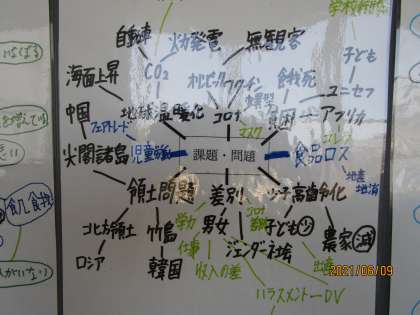 学校
自動車
火力発電
無観客
子ども
海面上昇
CO₂
オリンピック
ワクチン
餓死
ユニセフ
中国
地球温暖化
コロナ
貧困
アフリカ
フェアトレード
マスク
尖閣諸島
児童労働
課題・問題
食品ロス
地産
地消
領土問題
差別
少子高齢化
学力
男女
子ども
農家
減
北方領土
竹島
仕事
ジェンダー
社会
ロシア
韓国
収入の差
出産
ハラスメント
DV
2021/06/09